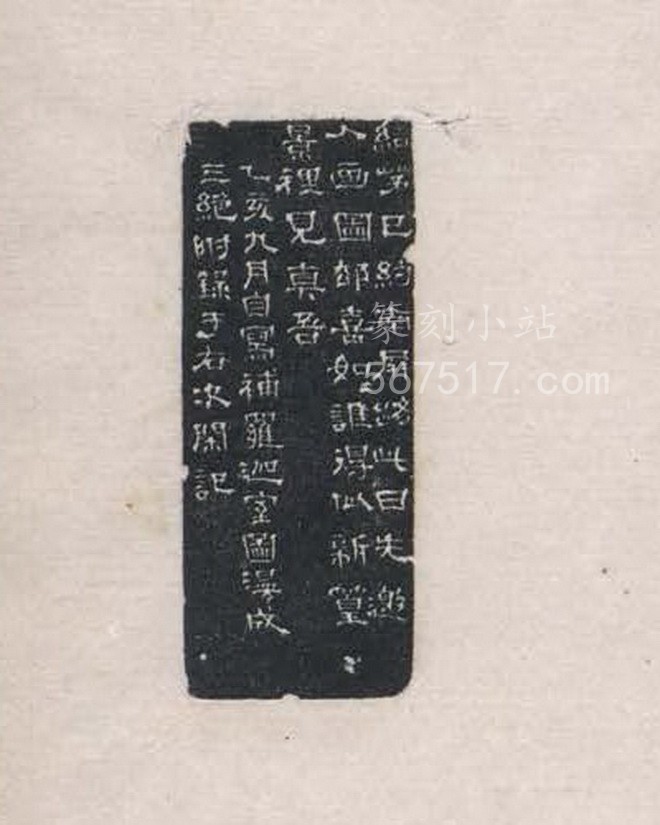 結茅已約南屏路此日先邀
入画圖郤喜如誰得似新篁
景裡見真吾
乙亥九月自寫補羅迦室圖漫成
三絕附錄于右次閑記
篆刻小站
567517.com